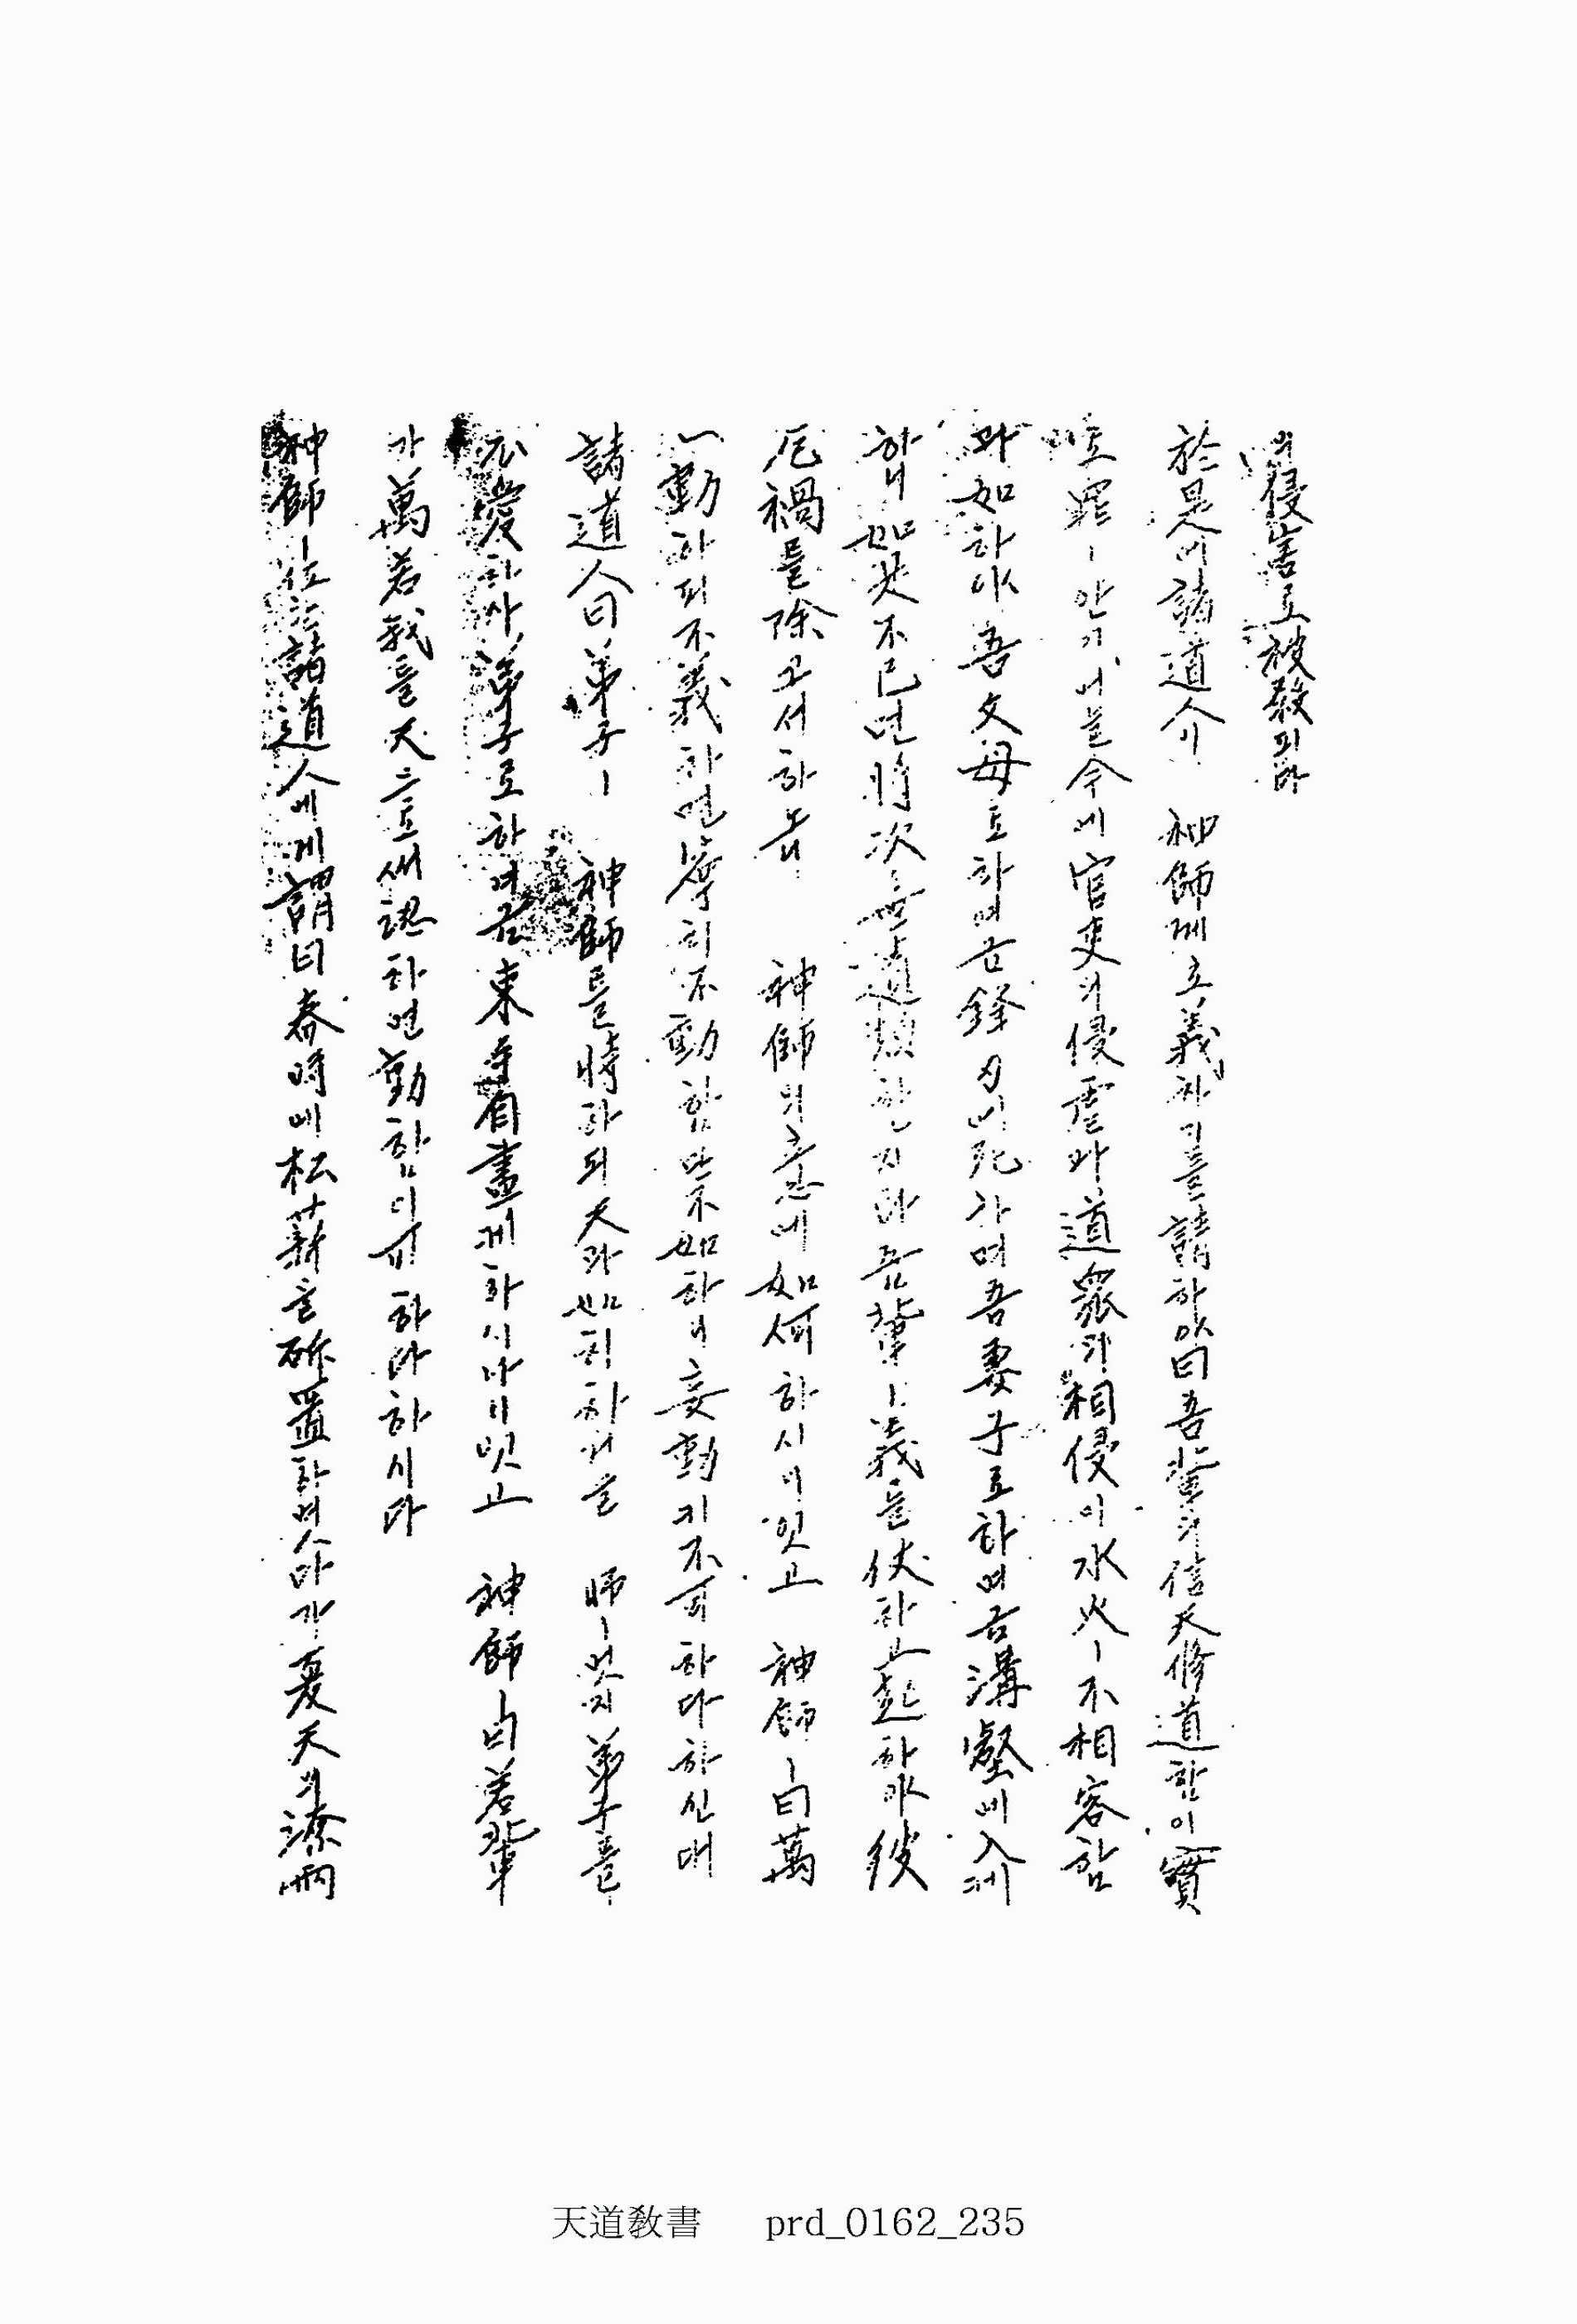 의侵害로被할지라
於是에諸道人이 神師께立義하기를請하야曰吾輩의信天修道함이實
로罪ㅣ안기어늘今에官吏의侵虐과道衆의相侵이水火ㅣ不相容함
과如하야吾父母로하여금鋒刃에死가며吾妻子로하여금溝壑에入게
하니如是不已면將次無道類한지라吾輩ㅣ義를伏하고起하야彼
厄禍를除고저하노니 神師의意에如何하시니잇고 神師ㅣ曰萬
一動하되不義하면寂히不動함만不如하니妄動키不可하다하신대
諸道人曰弟子ㅣ 神師를恃하되天과如히하거늘 師ㅣ엇지弟子를
不愛하사弟子로하여금束手自盡케하시나니잇고 神師ㅣ曰若輩
가萬若我를天으로써認하면動함이可하다하시다
神師ㅣ諸道人에게謂曰春時에松薪을斫置하엿다가夏天의潦雨